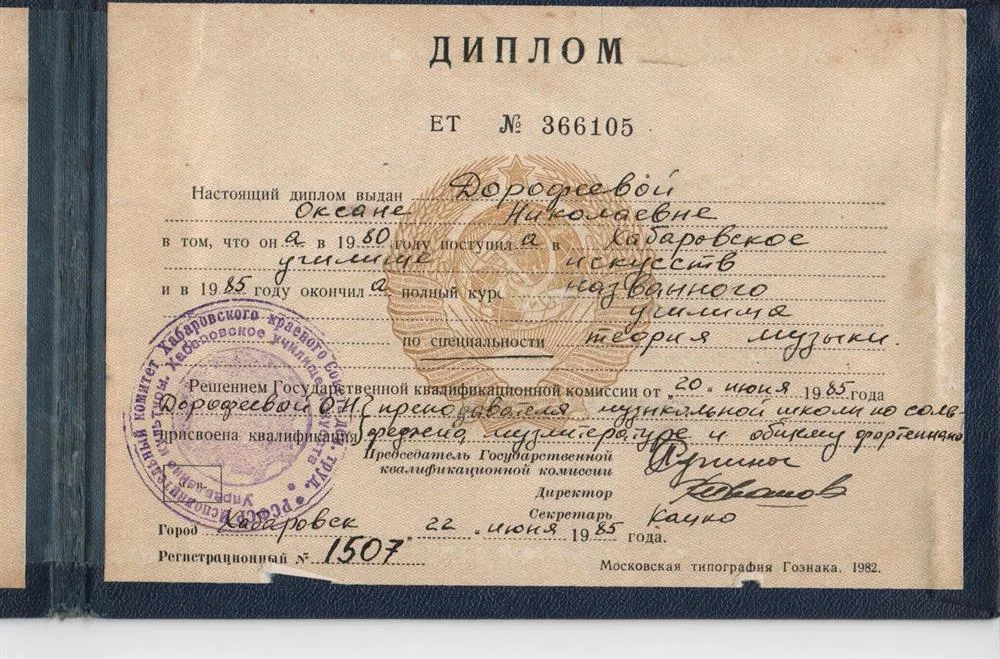 ДИПЛОМ
ЕТ № 366105
Настоящий диплом выдан Дорофеевой
Оксане Николаевне
в том, что она в 1980 году поступила в Хабаровское
училище искусств
и в 1985 году окончила полный курс названного
училища
по специальности теория музыки.
Решением Государственной квалификационной комиссии от "20" июня 1985 года
Дорофеевой О.Н. преподавателя музыкальной школы по соль-
присвоена квалификация феджио, музлитературе и общему фортепиано
Председатель Государственной
квалификационной комиссии
Директор
Секретарь Кацко
Город Хабаровск "22" июня 1985 года.
Регистрационный № 1507
Московская типография Гознака. 1982.
Исполнительный комитет Хабаровского краевого Совета деп. труд. РСФСР
Управление культуры Хабаровское училище искусств
М.П.